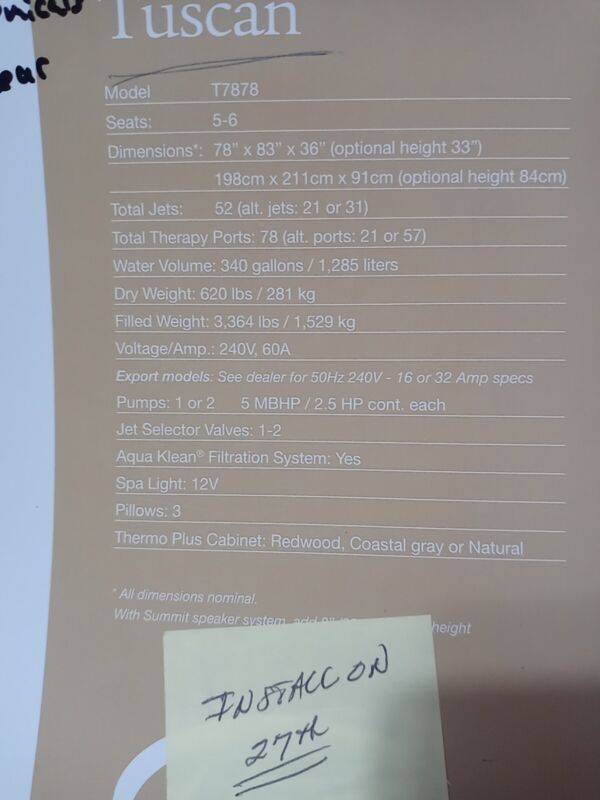 Tuscan
Model T7878
Seats: 5-6
Dimensions*: 78" x 83" x 36" (optional height 33")
198cm x 211cm x 91cm (optional height 84cm)
Total Jets: 52 (alt. jets: 21 or 31)
Total Therapy Ports: 78 (alt. ports: 21 or 57)
Water Volume: 340 gallons / 1,285 liters
Dry Weight: 620 lbs / 281 kg
Filled Weight: 3,364 lbs / 1,529 kg
Voltage/Amp.: 240V, 60A
Export models: See dealer for 50Hz 240V - 16 or 32 Amp specs
Pumps: 1 or 2 5 MBHP / 2.5 HP cont. each
Jet Selector Valves: 1-2
Aqua Klean® Filtration System: Yes
Spa Light: 12V
Pillows: 3
Thermo Plus Cabinet: Redwood, Coastal gray or Natural
* All dimensions nominal.
With Summit speaker system, add height
INSTALL ON
27th